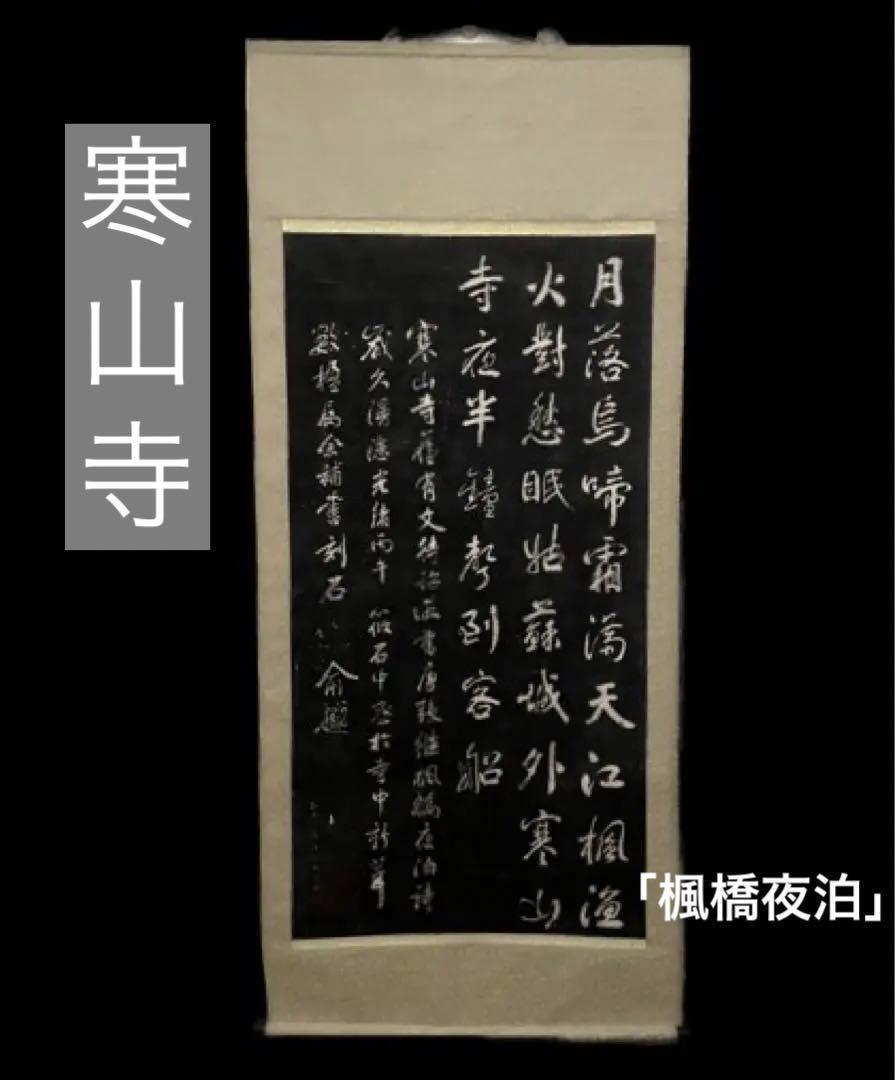 寒山寺
月落烏啼霜滿天江楓漁
火對愁眠姑蘇城外寒山
寺夜半鐘聲到客船
寒山寺舊有文待詔所書唐張繼楓橋夜泊詩
歲久漫漶光緒丙午 筱石中丞於寺中新葺
數楹屬余補書刻石 俞樾
「楓橋夜泊」